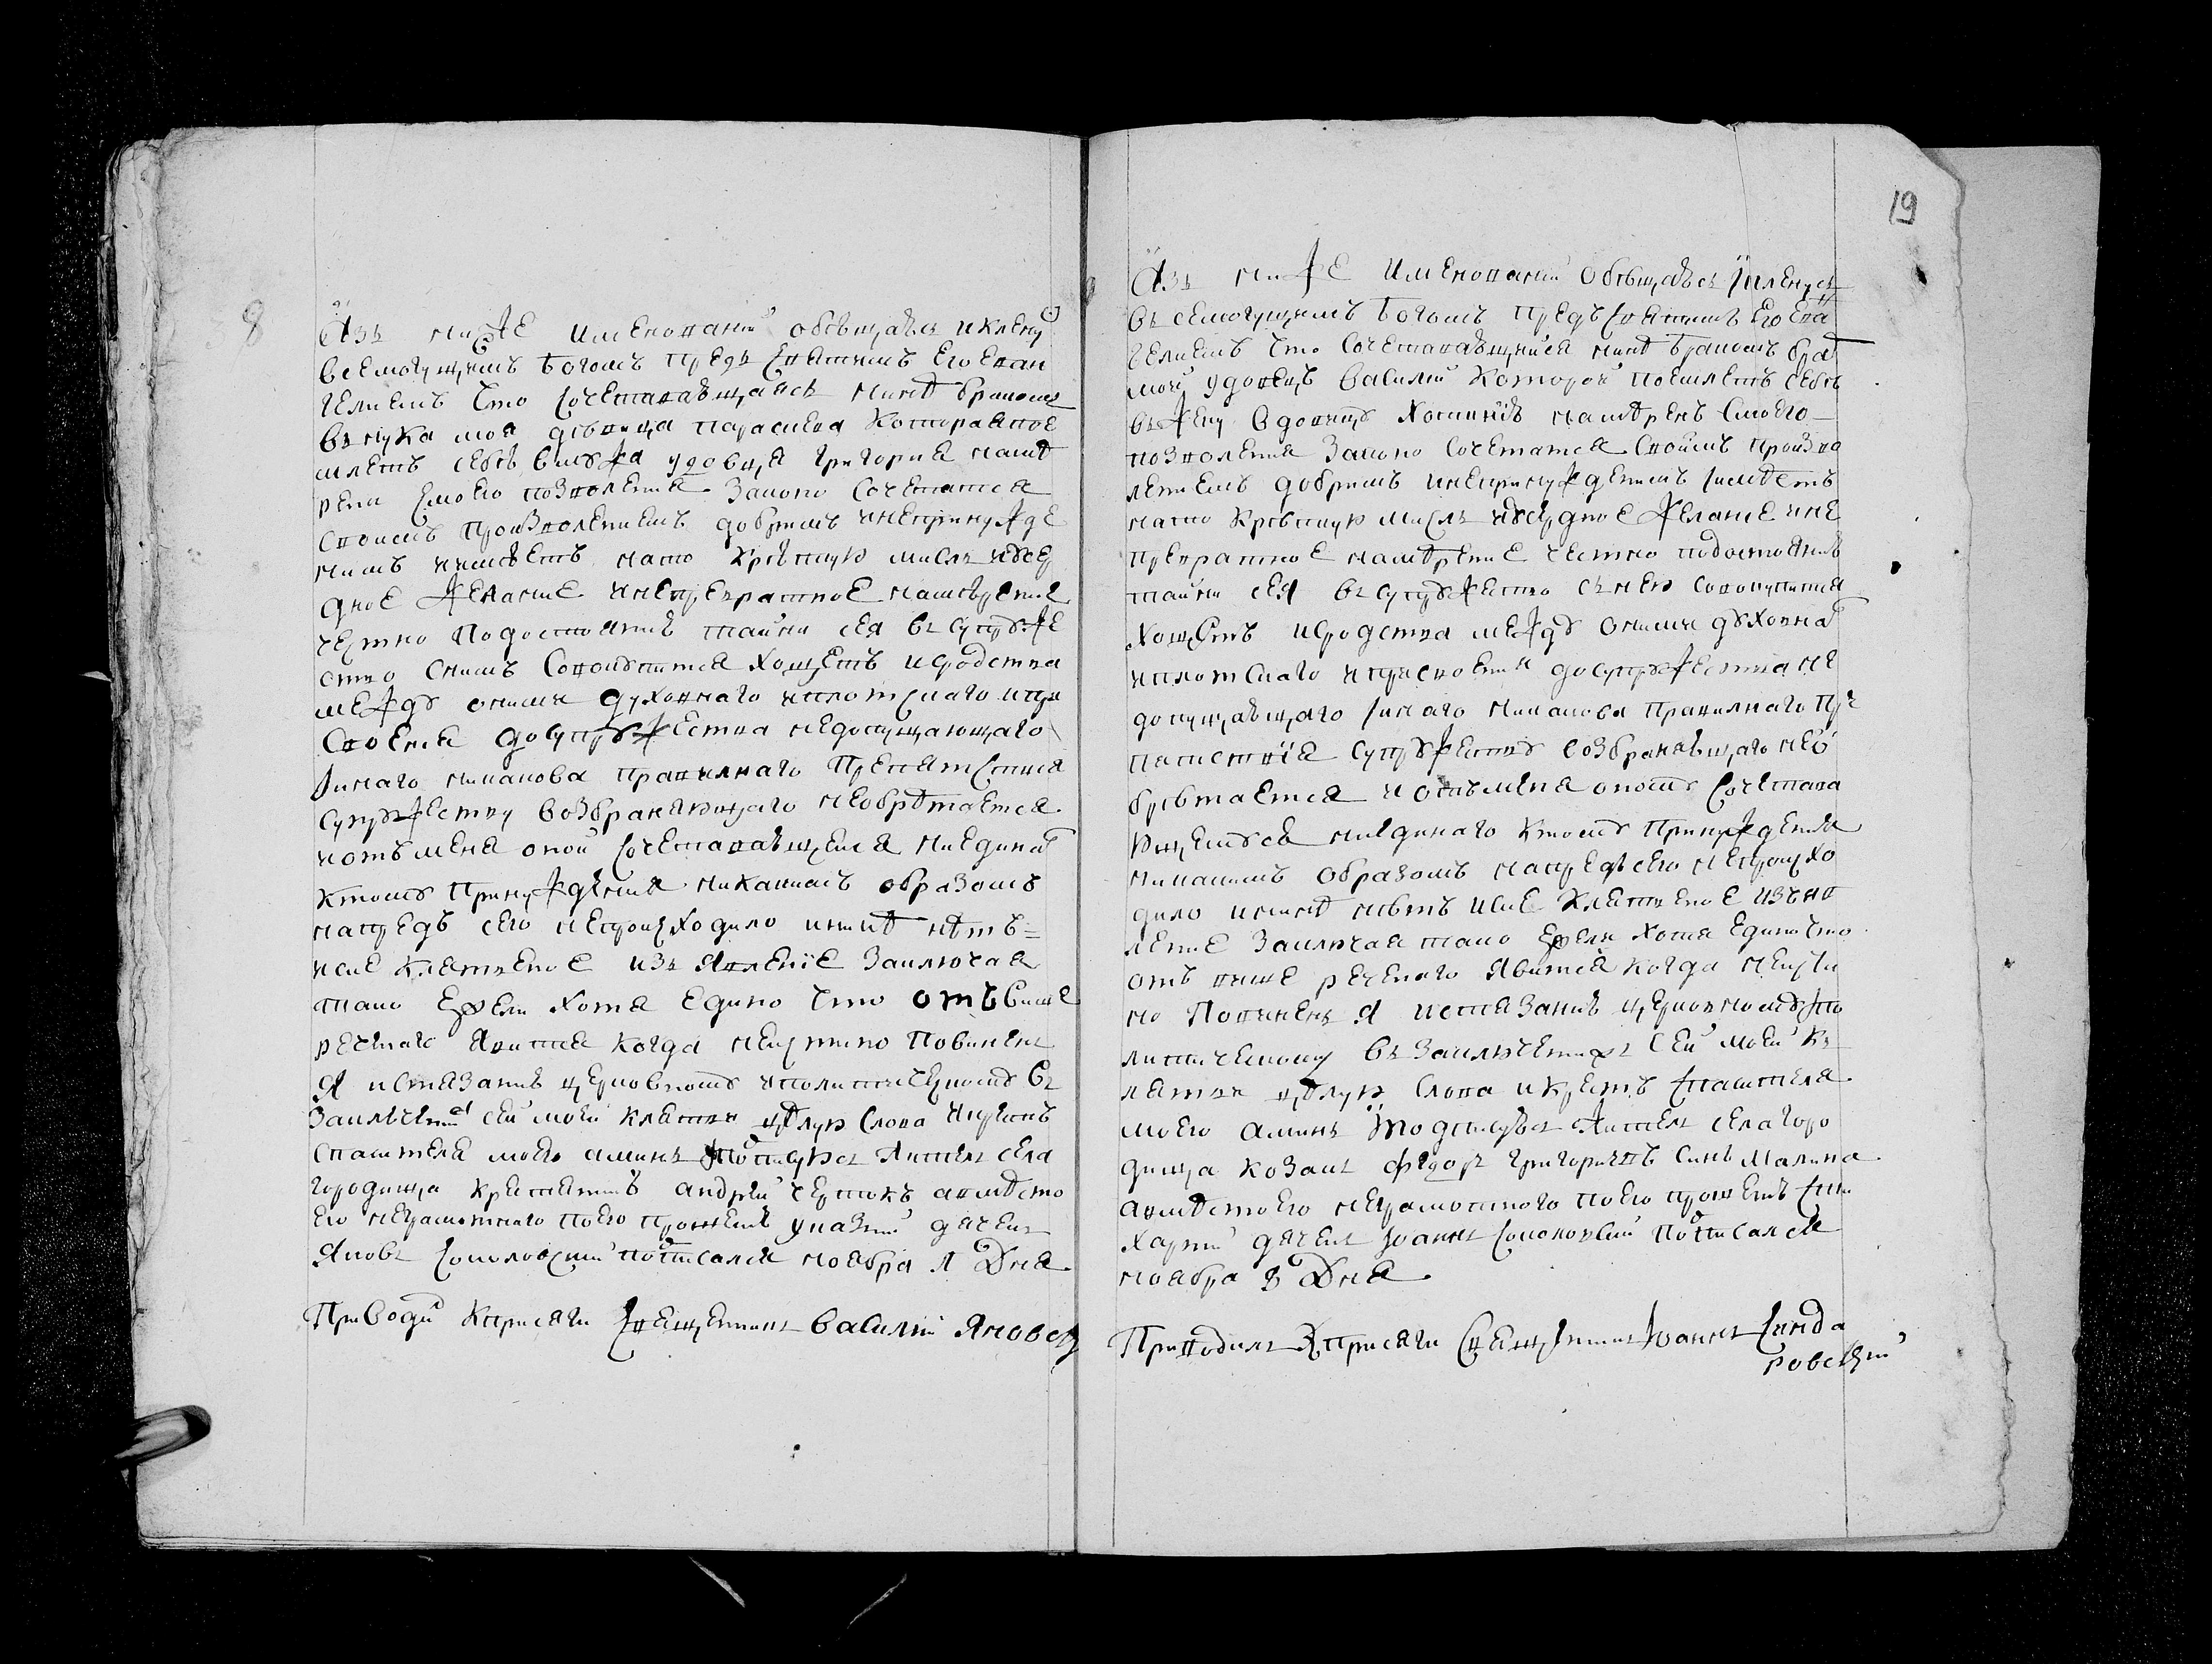 8
Азъ ниже именованній обѣщаюся и клену
всемогущимъ Богомъ предъ святимъ Его еван
гелиемъ что сочетавающаясь нинѣ бракомъ
внука моя дѣвица Параскева которая пое
млетъ себѣ вмужа удовца Григория намѣ
рена смоего позволения законо сочетатся
своимъ произволениемъ добримъ инепринужде
нимъ иимѣетъ нато крѣпкую мисль иусер
дное желание инепревратное намѣрение
честно подостоянию тайни сея всупруже
ство снимъ совокупится хощетъ иродства
между оними духовнаго иплотскаго ипри
своения досупружества недопущающаго
інаго никакова правилнаго препятствия
супружеству возбраняющаго необрѣтается
иотъ мене оной сочетавающейся ниединаг
ктому принуждения никакимъ образомъ
напредъ сего непроизходило ининѣ нѣтъ=
исие клятвеное изъявленіе заключая
тако ежели хотя едино что отъ више
реченаго явится когда неистино повиненъ
я истязанию церковному иполитическому въ
заключение сей моей клятви цѣлую слова икрестъ
спасителя моего аминь подписуюсь житель села
городища крестянинъ андрей чертокъ авмѣсто
его неграмотнаго поего прошению указній дячекъ
яковъ соколовскій подписался ноября л Дня
Приводи кприсяги священникъ василій Яновск
19
Азъ ниже именованій обѣщаюся іклянуся
всемогущимъ Богомъ предъ святимъ Его ева
гелиемъ что сочетавающийся нинѣ бракомъ брат
мой удовецъ василий которой поемлетъ себѣ
вжену вдовицу намѣренъ смоего
позволения законо сочетатся своимъ произво
лениемъ добримъ инепринужденимъ іимѣетъ
нато крѣпкую мисль иусердное желание ине
превратное намѣрение честно подостоянию
тайни сея всупружество снею совокупится
хощетъ иродства между оними духовнаг
иплотскаго иприсвоения досупружества не
допущающаго інаго никакова правилнаго пре
пятствїя супружеству возбраняющаго нео
брѣтается иотъ мене оному сочетава
ющемуся ниединаго ктому принуждения
никакимъ образомъ напредъ сего непроизхо
дило ининѣ нѣтъ исие клятвеное изъяв
ление заключая тако ежели хотя едино что
отъ више реченаго явится когда неисти
но повиненъ я истязанию церковному іпо
литическому въ заключение сей моей кл
лятви цѣлую слова икрестъ спасителя
моего аминь подписуюсь житель села горо
дища козакъ федоръ григориевъ синъ малина
авмѣсто его неграмотного поего прошению
дячекъ іоаннъ соколовскій подписался
ноября 3 Дня
Приводилъ кприсяги священникъ іоаннъ синда
ровскій